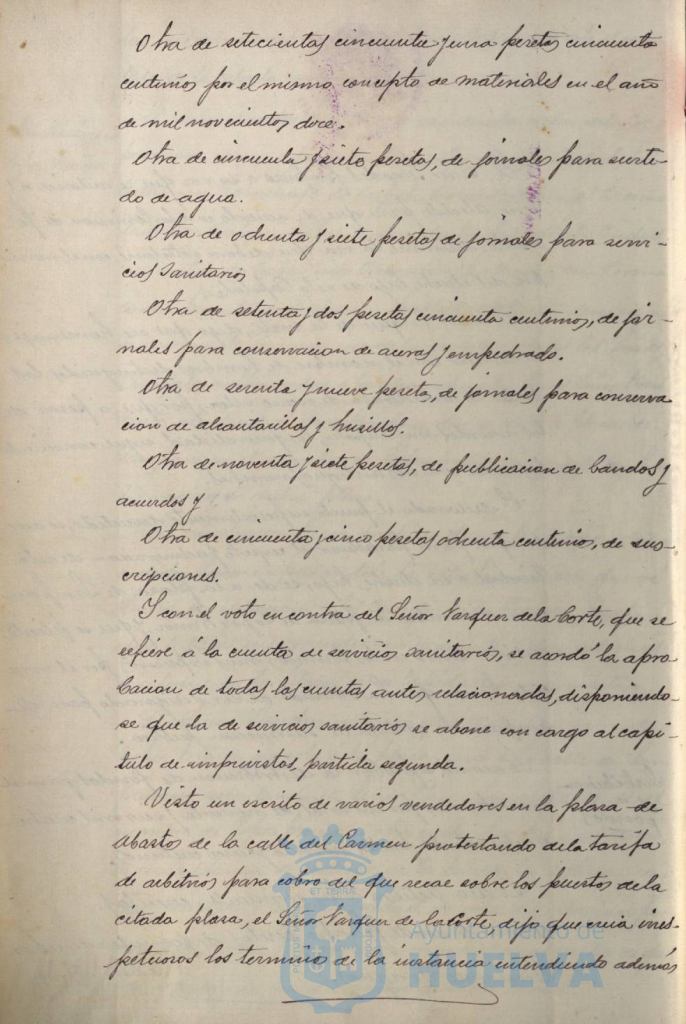 Otra de setecientas cincuenta y una pesetas cincuenta
centimos por el mismo concepto de materiales en el año
de mil novecientos doce.
Otra de cincuenta y siete pesetas, de jornales para surti-
do de agua.
Otra de ochenta y siete pesetas de jornales para servi-
cios sanitarios
Otra de setenta y dos pesetas cincuenta centimos, de jor-
nales para conservacion de aceras y empedrado.
Otra de sesenta y nueve pesetas, de jornales para conserva
cion de alcantarillas y husillos.
Otra de noventa y siete pesetas, de publicacion de bandos y
acuerdos y
Otra de cincuenta y cinco pesetas ochenta centimos, de sus-
cripciones.
Y con el voto en contra del Señor Vazquez de la Corte, que se
refiere á la cuenta de servicios sanitarios, se acordó la apro
bacion de todas las cuentas antes relacionadas, disponiendo-
se que la de servicios sanitarios se abone con cargo al capi-
tulo de imprevistos, partida segunda.
Visto un escrito de varios vendedores en la plaza de
abastos de la calle del Carmen protestando de la tarifa
de arbitrios para cobro del que recae sobre los puestos de la
citada plaza, el Señor Vazquez de la Corte, dijo que creia irres-
petuosos los terminos de la instancia entendiendo además
Ayuntamiento de
HUELVA